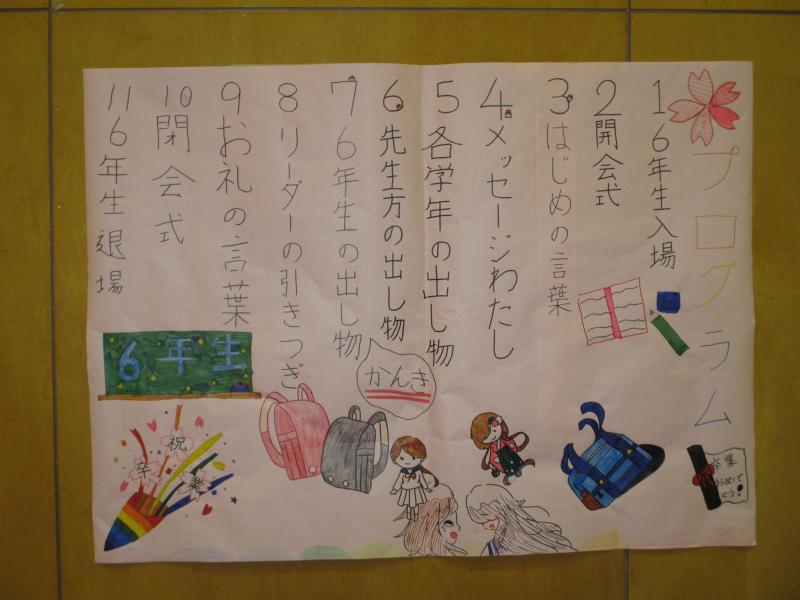 プログラム
1 6年生入場
2 開会式
3 はじめの言葉
4 メッセージわたし
5 各学年の出し物
6 先生方の出し物
7 6年生の出し物
かんき
8 リーダーの引きつぎ
9 お礼の言葉
10 閉会式
11 6年生退場
卒業
おめで
とう!
6年生
祝
卒
業